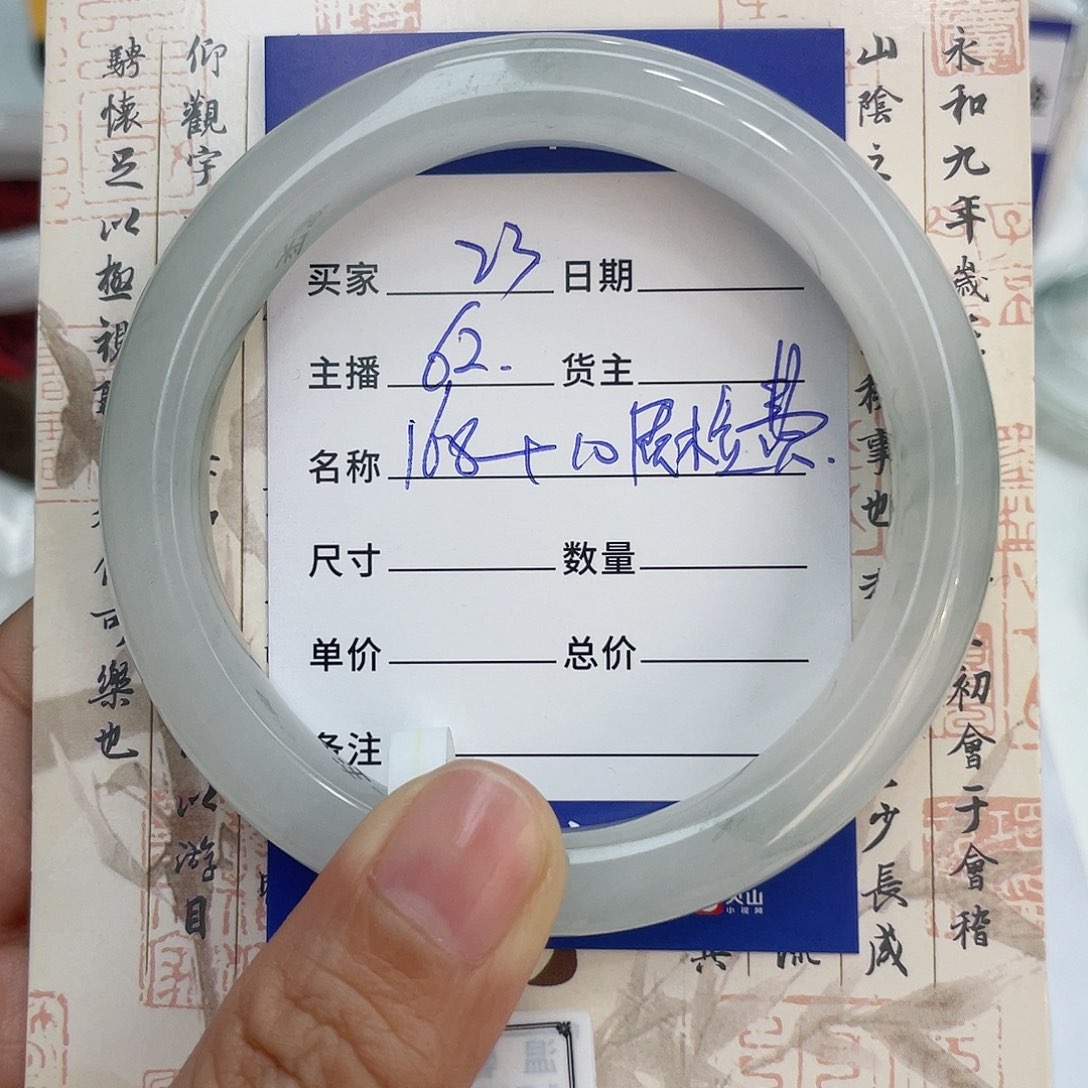 永和九年歲
山陰之
事也
初會于會稽
少長咸
仰觀宇
以游目
騁懷足以極視
可樂也
买家 23 日期
主播 62. 货主
名称 168+10周检费.
尺寸 数量
单价 总价
备注
火山
小视频
温